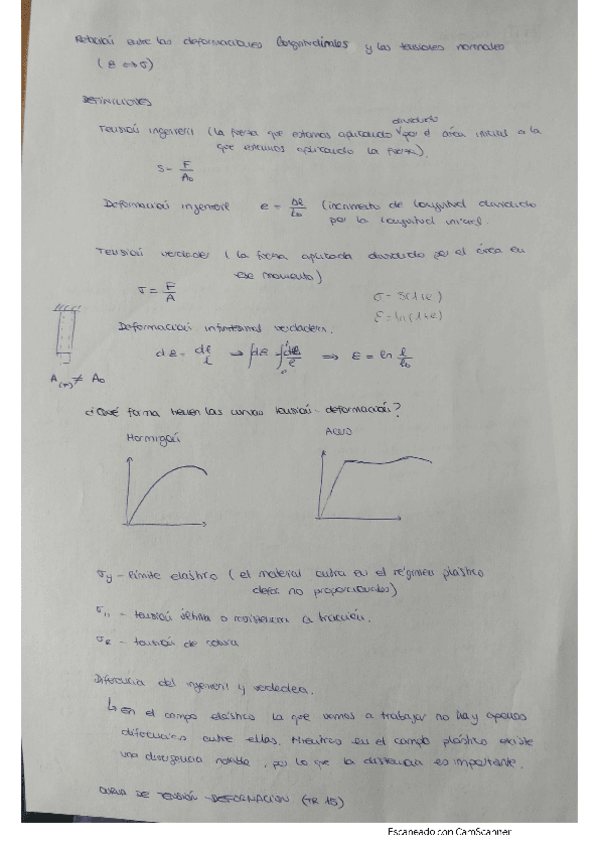 Relación entre las deformaciones longitudinales y las tensiones normales
(ε ↔ σ)
DEFINICIONES
dividido
Tensión ingenieril (la fuerza que estamos aplicando por el área inicial a la
que estamos aplicando la fuerza).
S = F/A₀
Deformación ingenieril e = Δl/l₀ (incremento de longitud dividido
por la longitud inicial.
Tensión verdadera (la fuerza aplicada dividido por el área en
ese momento)
σ = F/A
σ = S(1+e)
ε = ln(1+e)
Deformación infinitesimal verdadera.
dε = dl/l → ∫dε = ∫dl/l ⇒ ε = ln l/l₀
≠ A₀
¿Qué forma tienen las curvas tensión-deformación?
Hormigón
Acero
σy - límite elástico (el material entra en el régimen plástico
defor. no proporcionales)
- tensión última o resistencia a tracción.
σR - tensión de rotura
Diferencia del ingenieril y verdadera.
↳ en el campo elástico la que vamos a trabajar no hay apenas
diferencias entre ellas. Mientras en el campo plástico existe
una divergencia notable, por lo que la distancia es importante.
CURVA DE TENSIÓN-DEFORMACIÓN (TR 15)
Escaneado con CamScanner